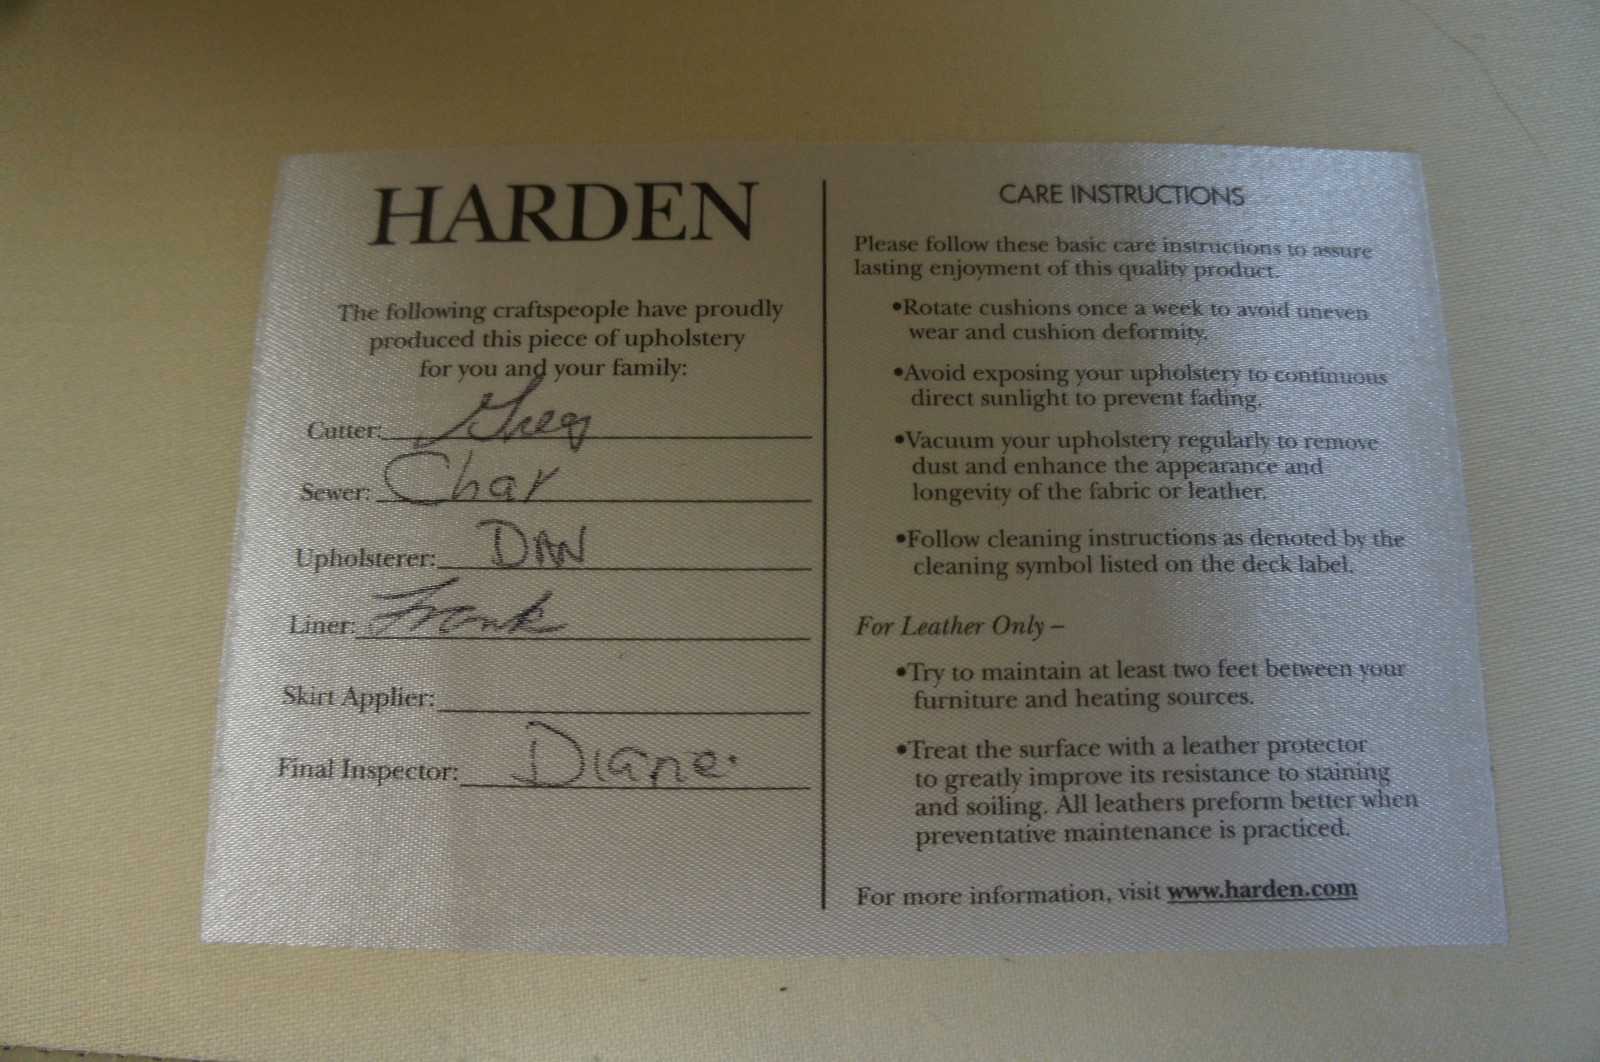 HARDEN
The following craftspeople have proudly
produced this piece of upholstery
for you and your family:
Cutter: Greg
Sewer: Char
Upholsterer: DAN
Liner: Frank
Skirt Applier:
Final Inspector: Diane
CARE INSTRUCTIONS
Please follow these basic care instructions to assure
lasting enjoyment of this quality product.
•Rotate cushions once a week to avoid uneven
wear and cushion deformity.
•Avoid exposing your upholstery to continuous
direct sunlight to prevent fading.
•Vacuum your upholstery regularly to remove
dust and enhance the appearance and
longevity of the fabric or leather.
•Follow cleaning instructions as denoted by the
cleaning symbol listed on the deck label.
For Leather Only –
•Try to maintain at least two feet between your
furniture and heating sources.
•Treat the surface with a leather protector
to greatly improve its resistance to staining
and soiling. All leathers preform better when
preventative maintenance is practiced.
For more information, visit www.harden.com